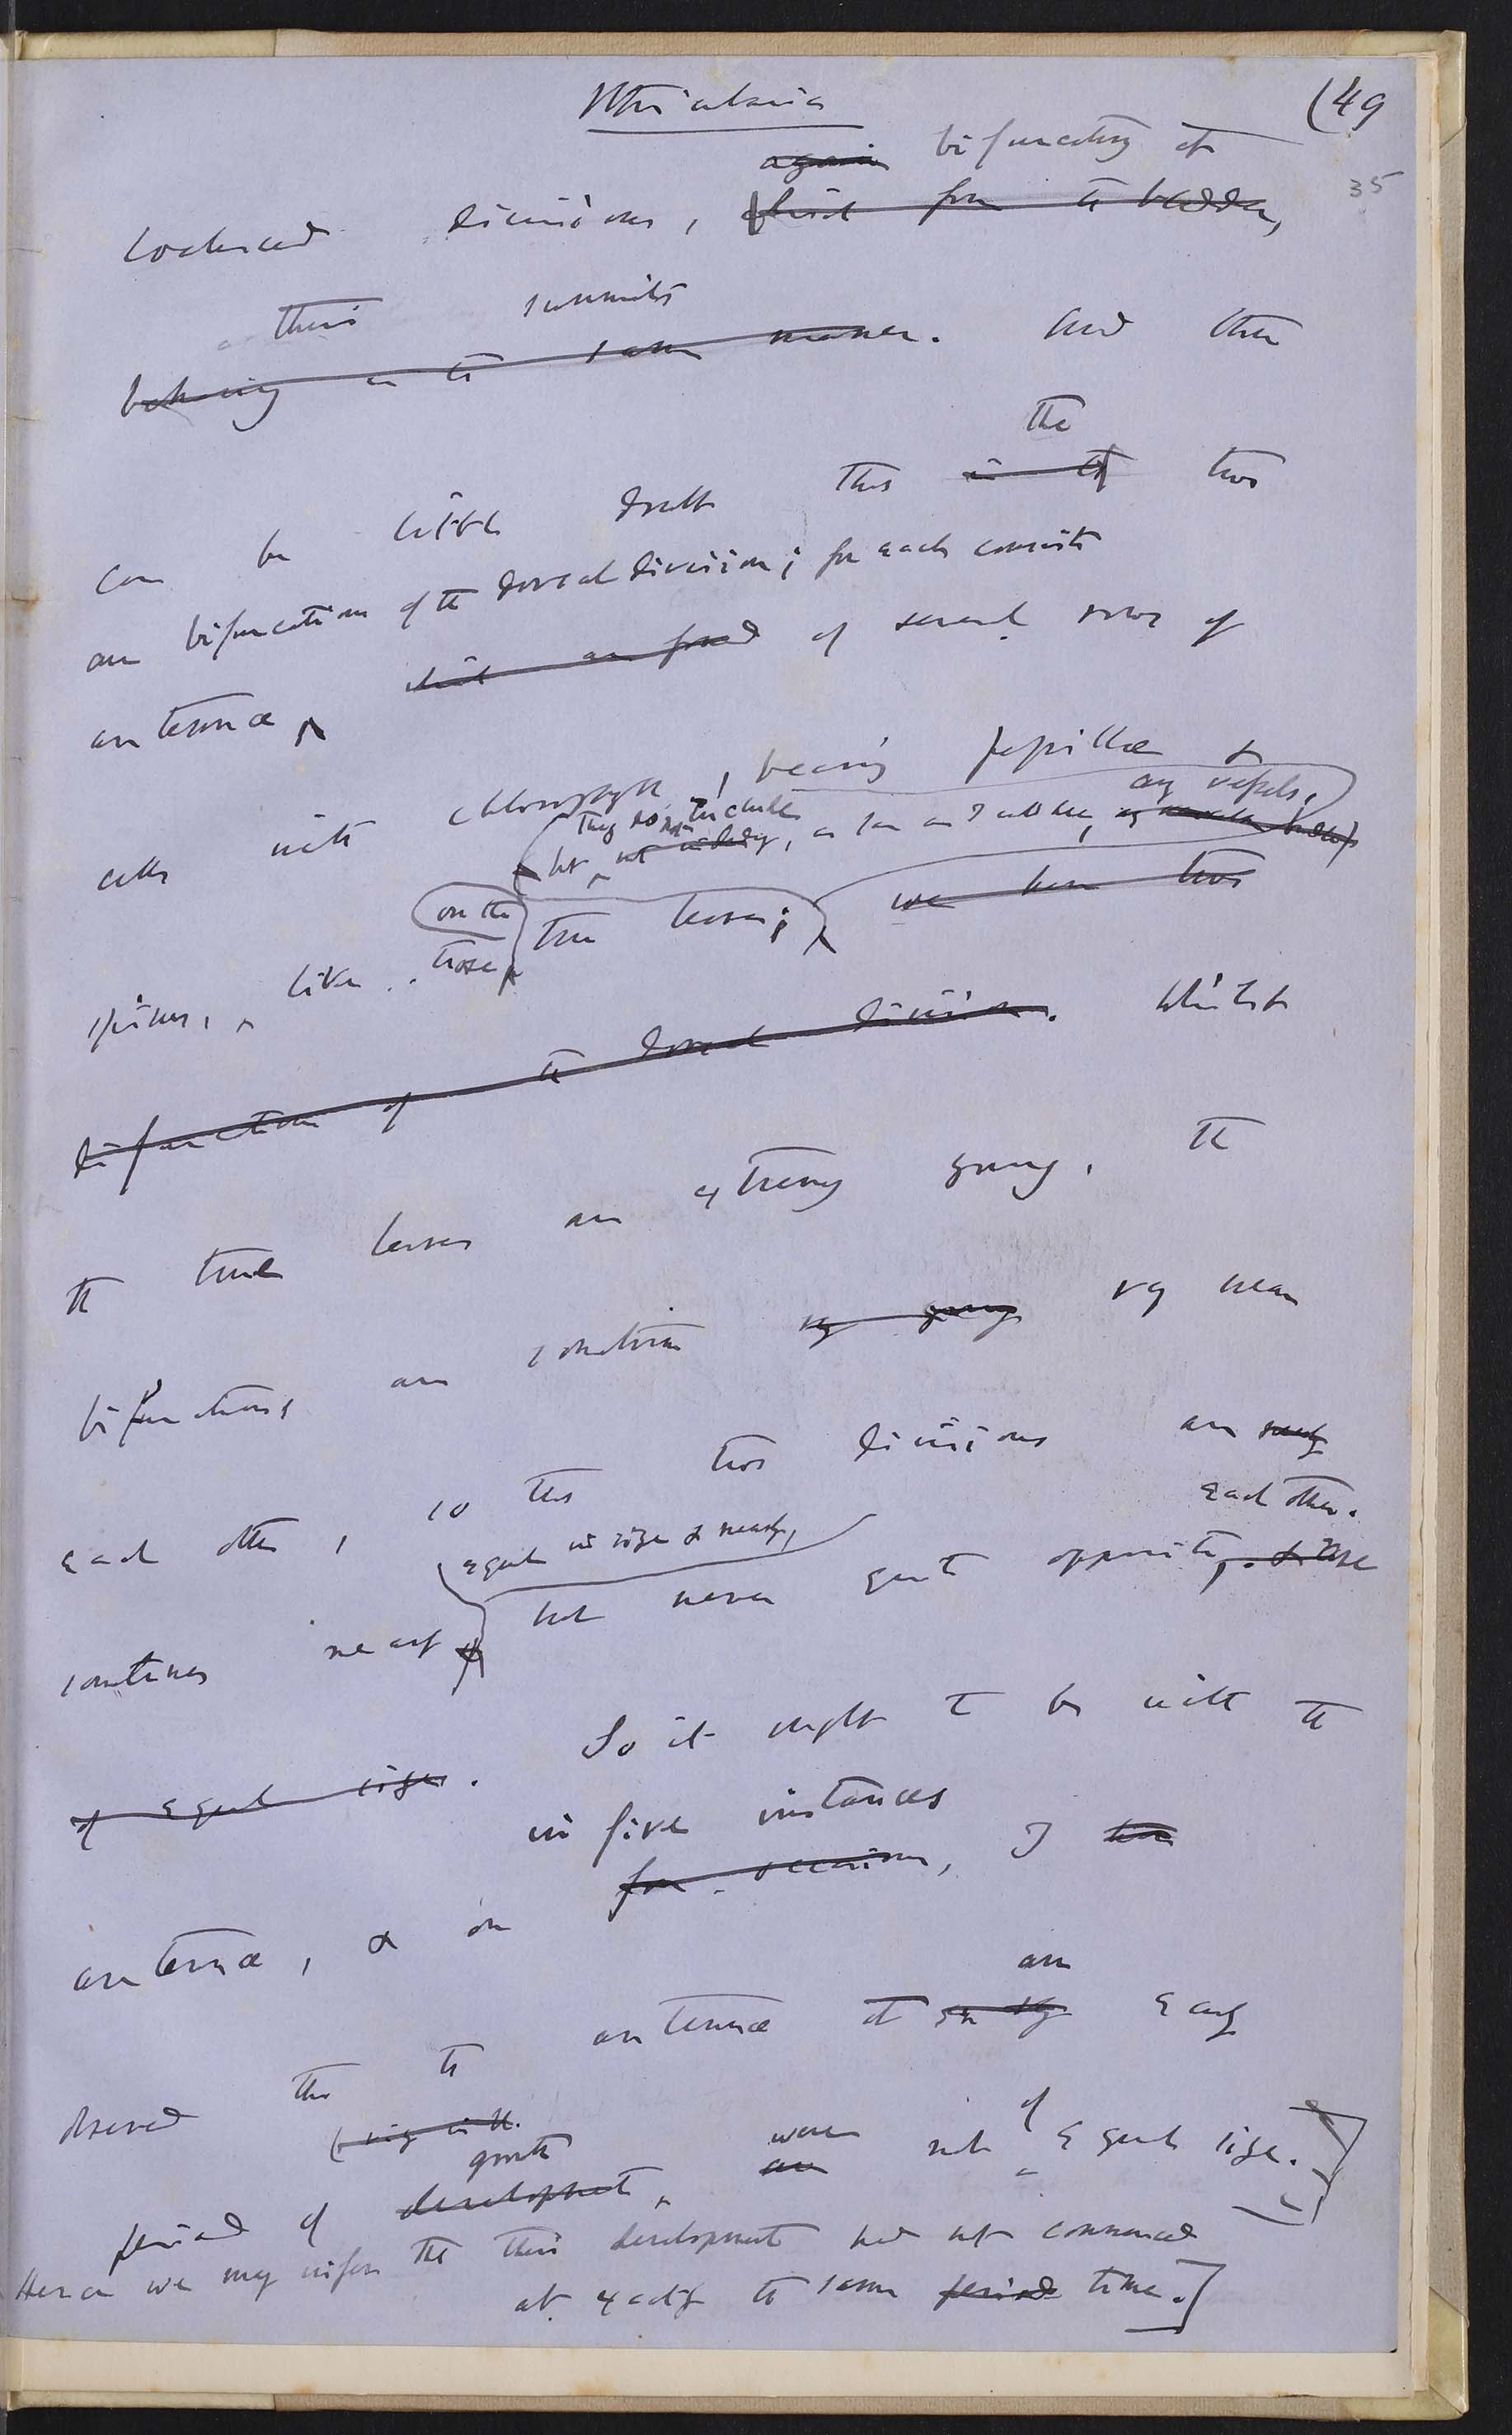 Utricularia
(49
35
again bifurcating at
coalesced divisions, first from the bladder,
their summits
behaving in the same manner. And there
the
can be little doubt that in the two
are bifurcations of the dorsal division; for each consists
antennæ which are formed of several rows of
cells with chlorophyll, bearing papillæ &
they do not include any vessels.
but not including, as far as I could see,
on the
spines, like those true leaves; we have two
bifurcation of the dorsal division. Whilst
the true leaves are extremely young, the
bifurcations are sometimes very young very near
each other, so that two divisions are nearly
equal in size & nearly, each other.
sometimes nearly but never quite opposite, & these
of equal size. So it ought to be with the
in five instances
antennæ, & on four occasions, I have
an
observed that the antennæ at early
growth were of
period of development, are not equal size.]
Hence we may infer that their development had not commenced
at exactly the same period time.]